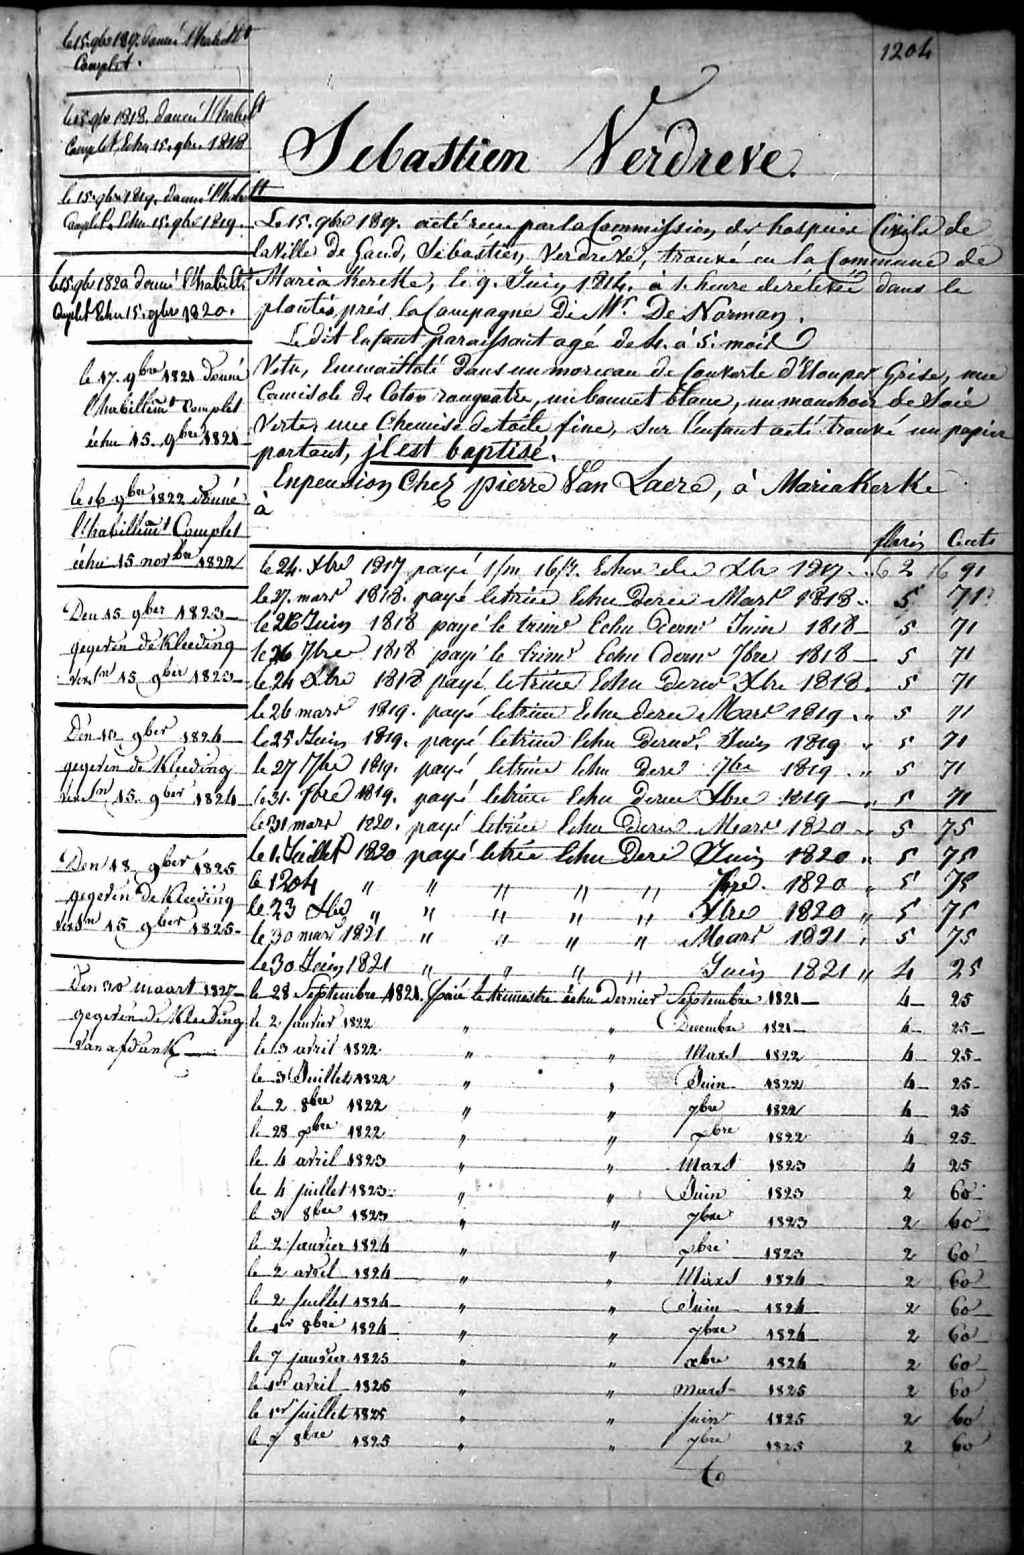 1204
Sébastien Verdreve.
le 15. 9bre 181. donné l'habillt
Complet.
le 15 9bre 1818. donné l'habillt
Complet Echu 15. 9bre 1818
le 15. 9bre 1819. donné l'habillt
Complet Echu 15. 9bre 1819.
le 15 9bre 1820 donné l'habillt
Complet Echu 15. 9bre 1820.
le 17. 9bre 1821 donné
l'habillemt complet
échu 15. 9bre 1821
le 16 9bre 1822 donné
l'habillemt Complet
échu 15 novbre 1822
Den 15 9ber 1823
gegeven de Kleeding
15 9ber 1823
Den 15 9ber 1824
gegeven de Kleeding
15. 9ber 1824
Den 18 9ber 1825
gegeven de Kleeding
15 9ber 1825
Den 30 maart 1827
gegeven de Kleeding
Le 15. 9bre 181. a été reçu par la Commission des hospices Civils de
la Ville de Gand, Sébastien Verdreve, trouvé en la Commune de
Maria Kercke, le 9. Juin 1814. à 1. heure de rélevée dans le
plantis près la Campagne de Mr. De Norman.
Le dit Enfant paraissant agé de 4. à 5. mois
Vetu, Emmailloté dans un morceau de Couverte d'Etoupes Grise, une
Camisole de Coton, un bonnet blanc, un mouchoir de Soie
Verte, une Chemise de toile fine, sur l'enfant a été trouvé un papier
portant, il est baptisé.
En pension Chez pierre Van Laere, à Mariakerke
à
florins Cents
le 24. Xbre 1817 payé Xbre 1817. 62 1691
le 27. mars 1818. payé le trim Echu dernr Mars 1818. 5 71
le 26 Juin 1818 payé le trimr Echu dernr Juin 1818 5 71
le 26 7bre 1818 payé le trimr Echu dernr 7bre 1818 5 71
le 24 Xbre 1818 payé le trim Echu dernr Xbre 1818. 5 71
le 26 mars 1819. payé le trim Echu dernr Mars 1819. " 5 71
le 25 Juin 1819. payé le trim Echu dernr. Juin 1819 " 5 71
le 27 7bre 1819. payé le trim Echu dernr 7bre 1819. " 5 71
le 31. Xbre 1819. payé le trim Echu dernr Xbre 1819 " 5 71
le 31 mars 1820. payé le trim Echu Dernr Mars 1820 " 5 75
le 1. Juillet 1820 payé le trim Echu Dernr Juin 1820 " 5 75
le 1204 " " " " " 7bre. 1820 " 5 75
le 23 Xbre " " " " " Xbre 1820 " 5 75
le 30 mars 1821 " " " " Mars 1821 " 5 75
le 30 Juin 1821 " " " " Juin 1821 " 4 25
le 28 Septembre 1821. payé le trimestre échu Dernier Septembre 1821 4 25
le 2 Janvier 1822 " " Decembre 1821 4 25
le 3 avril 1822 " " Mars 1822 4 25
le 3 Juillet 1822 " " Juin 1822 4 25
le 2 8bre 1822 " " 7bre 1822 4 25
le 28 xbre 1822 " " xbre 1822 4 25
le 4 avril 1823 " " Mars 1823 4 25
le 4 juillet 1823 " " Juin 1823 2 60
le 3 8bre 1823 " " 7bre 1823 2 60
le 2 Janvier 1824 " " xbre 1823 2 60
le 2 avril 1824 " " Mars 1824 2 60
le 2 Juillet 1824 " " Juin 1824 2 60
le 1er 8bre 1824 " " 7bre 1824 2 60
le 7 janvier 1825 " " xbre 1824 2 60
le 1er avril 1825 " " mars 1825 2 60
le 1er Juillet 1825 " " Juin 1825 2 60
le 7 8bre 1825 " " 7bre 1825 2 60